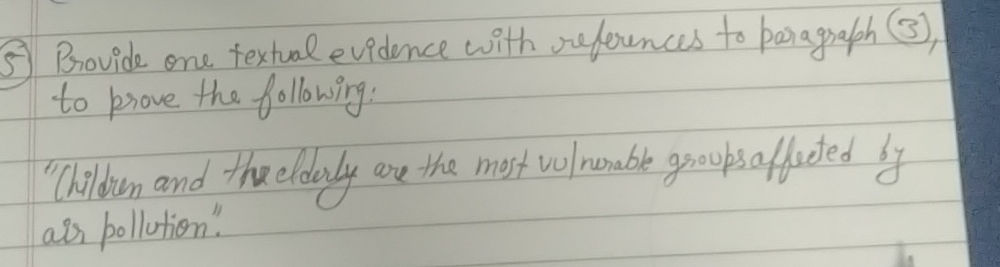 5 Provide one textual evidence with references to paragraph (3),
to prove the following:
"Children and the elderly are the most vulnerable groups affected by
air pollution".